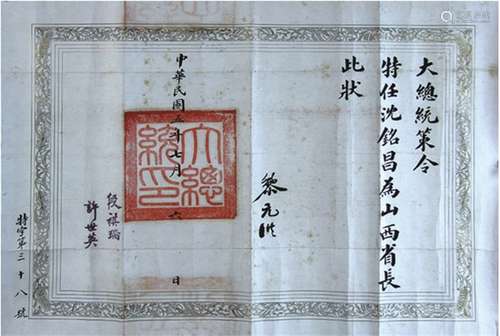 大總統策令
特任沈銘昌為山西省長
此狀
黎元洪
大總統印
中華民國五年七月六日
段祺瑞
許世英
特字第三十八號